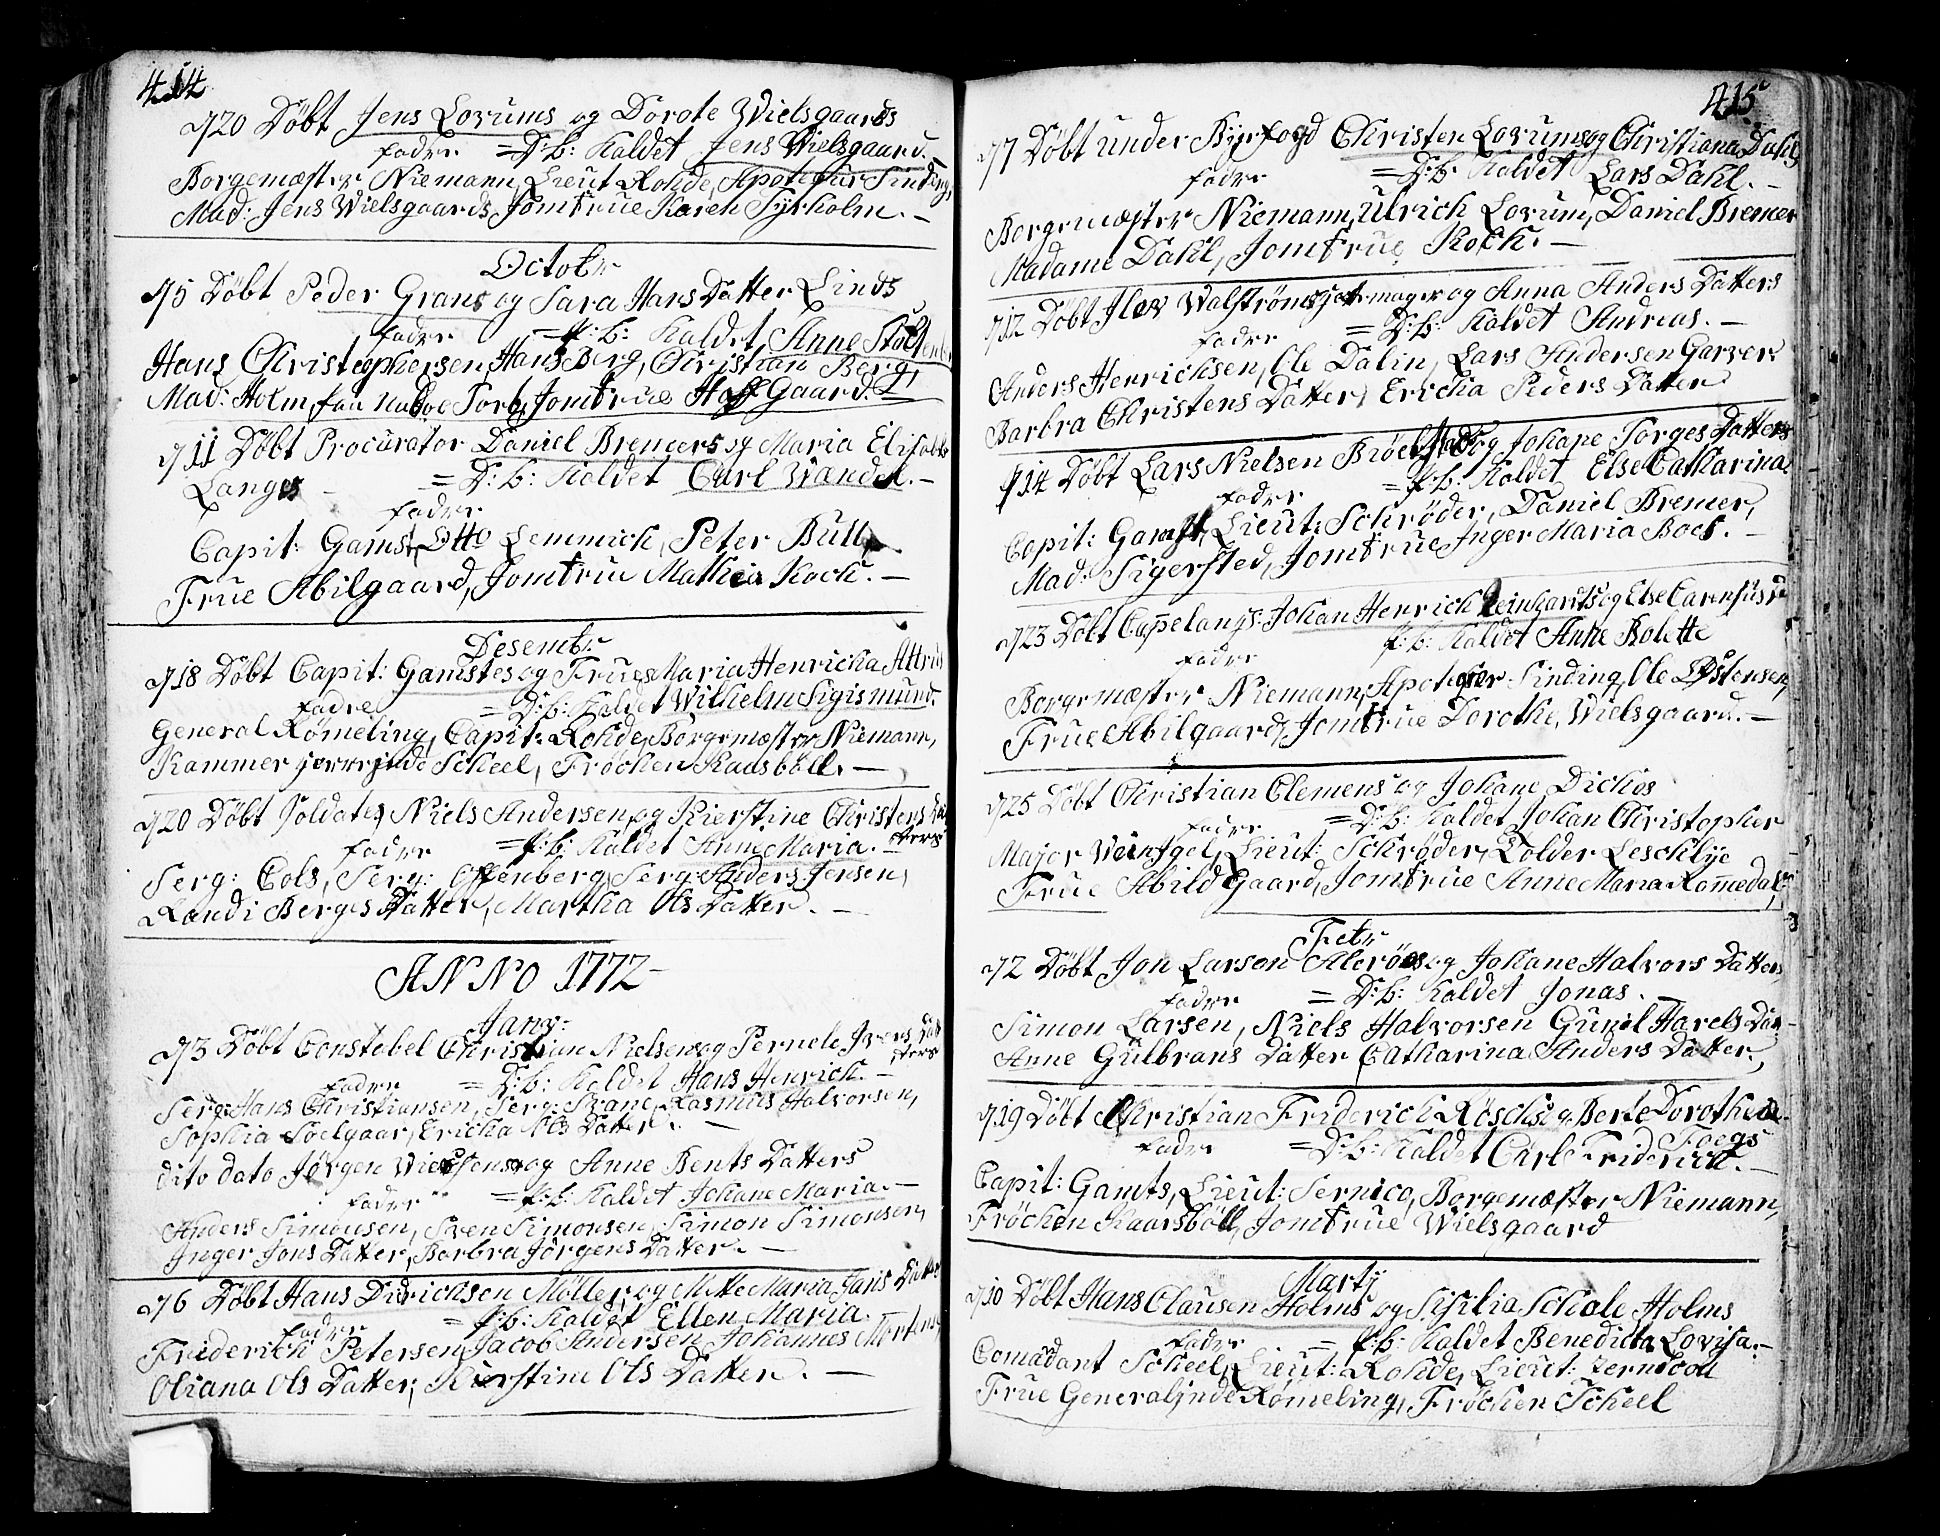 414
920 Döbt Jens Lorums og Dorote Wielsgaards
fadre = D:b: Kaldet Jens Wielsgaard.
Borgemæster Niemann, Lieut Rohde, Apoteqvr Sinding,
Mad: Jens Wielsgaards, Jomfrue Karen Tyrholm. —
Octobr
95 Döbt Peder Grans og Sara Hans Datter Linds
fadre = p:b: Kaldet Anne
Hans Christophersen, Hans Berg, Christian Berg,
Mad: Holm Jomfrue HoffGaard.
911 Döbt Procurator Daniel Bremers og Maria Elisabt
Langes = D:b: Kaldet Carl Wandel. —
fadre
Capit: Gamst, Otto Lemmich, Peter Bull
Frue Abilgaard, Jomfrue Mathia Koch. —
Desembr
918 Döbt Capit: Gamstes og Frues Maria Henricha
fadre = D:b: Kaldet Wilhelm Sigismund.
General Rømeling, Capit: Rohde, Borgemæster Niemann,
Kammerherrinde Scheel, Fröchen Kaasböll. —
920 Döbt Soldat Niels Andersens og Kierstine Christens Dat
ters
fadre = p:b: Kaldet Anne Maria. —
Serg: Cols, Serg: Offenberg, Serg: Anders Jensen,
Randi Berges Datter, Martha Ols Datter. —
ANNO 1772 —
Janv:
93 Döbt Constebel Christian Nielsens og Pernele Ivers Dat
ters
fadre = D:b: Kaldet Hans Henrich. —
Serg: Hans Christiansen, Serg: Svane, Rasmus Halvorsen,
Sophia Soelgaar, Ericha Ols Datter. —
dito dato Jörgen og Anne Bents Datters
fadre = p:b: Kaldet Johane Maria. —
Anders Simonsen, Sven Simonsen, Simon Simonsen,
Inger Jons Datter, Barbra Jörgens Datter. —
96 Döbt Hans Dirichsen Möller og Mette Maria Jans Datter
fadre = p:b: Kaldet Ellen Maria.
Friderich Petersen, Jacob Andersen Johannes Mortens
Oliana Ols Datter, Kierstine Ols Datter. —
415
97 Döbt under Byefogd Christen Lorums og Christiana Dahls
fadre = D:b: Kaldet Lars Dahl. —
Borgemæster Niemann, Ulrich Lorum, Daniel Bremer
Madame Dahl, Jomfrue Koch. —
912 Döbt Walströms og Anna Anders Datters
fadre = D:b: Kaldet Andreas. —
Anders Henrichsen, Ole Dalin, Lars Andersen Garver
Barbra Christens Datter, Ericha Peders Datter
914 Döbt Lars Nielsen og Johane Torges Datters
fadre = p:b: Kaldet Else Catharina.
Capit: Gamst, Lieut: Schrøder, Daniel Bremer,
Mad: Sigersted, Jomfrue Inger Maria Boes. —
923 Döbt Capelans Johan Henrich Reinhardts og Else
fadre p:b: Kaldet Anne Bolette
Borgemæster Niemann, Apoteker Sinding, Ole Østensen,
Frue Abilgaard, Jomfrue Dorothe Wielsgaard. —
925 Döbt Christian Clemens og Johane Dichos
fadre = D:b: Kaldet Johan Christopher
Major Weinigel, Lieut: Schröder, Tolder Leschlye
Frue AbildGaard, Jomfrue Anne Maria Romedal,
Febr
92 Döbt Jon Larsen og Johane Halvors Datters
fadre = D:b: Kaldet Jonas. —
Simon Larsen, Niels Halvorsen Gunil Harels Dat-
Anne Gulbrans Datter Catharina Anders Datter,
919 Döbt Christian Friderich Röschs og Berte Dorothea
Foegs
fadre = D:b: Kaldet Carl Friderich. —
Capit: Gamts, Lieut: Sernico, Borgemæster Niemann,
Fröchen Kaarsböll, Jomfrue Wielsgaard
Martij
910 Döbt Hans Clausen Holms og Sisilia Schale Holms
fadre = p:b: Kaldet Benedicta Lovisa. —
Comādant Scheel, Lieut: Rohde, Lieut: Zernicou
Frue Generalinde Rømeling, Fröchen Scheel